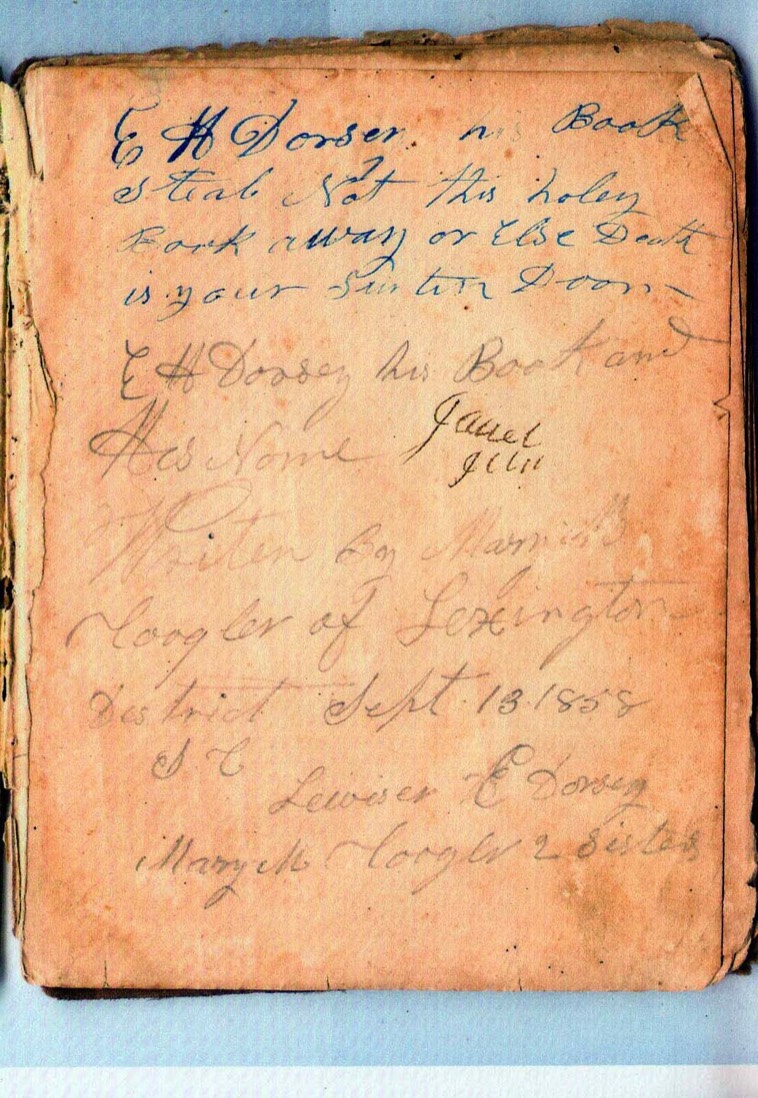 E H Dorsey his Book
Steal Not this holey
Book away or Else Death
is your Doom
E H Dorsey his Book and
His Name
Janet
Writen By
Coogler of Lexington
District Sept. 13. 1858
S C
Lewiser E Dorsey
Mary M Coogler 2 Sisters